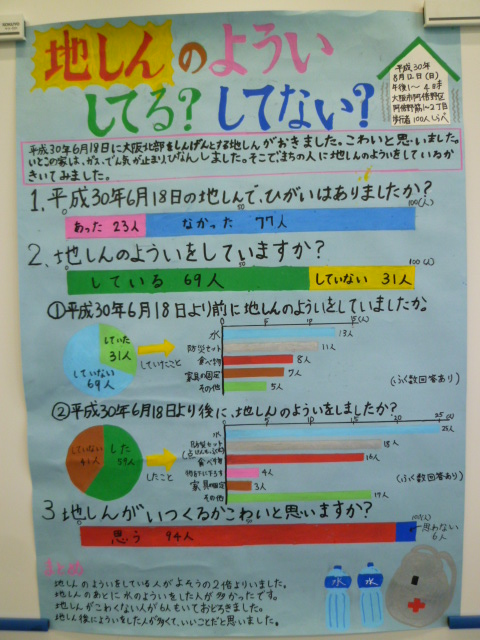 地しんのようい
してる? してない?
平成30年
8月12日(日)
午後1〜4時
大阪市阿倍野区
阿倍野筋1〜2丁目
歩行者100人しらべ
平成30年6月18日に大阪北部をしんげんとする地しんがおきました。こわいと思いました。
いとこの家は、ガス、でん気が止まり、ひなんしました。そこで、まちの人に地しんのよういをしているか
きいてみました。
1.平成30年6月18日の地しんで、ひがいはありましたか?
0 50 100(人)
あった 23人 なかった 77人
2.地しんのよういをしていますか?
0 50 100(人)
している 69人 していない 31人
①平成30年6月18日より前に地しんのよういをしていましたか。
していた 31人
していない 69人
していたこと
0 5 10 15(人)
水 13人
防災セット 11人
食べ物 8人
家具の固定 7人
その他 5人
(ふく数回答あり)
②平成30年6月18日より後に、地しんのよういをしましたか?
していない 41人
した 59人
したこと
0 5 10 15 20 25(人)
水 25人
防災セット 18人
食べ物 16人
4人
家具の固定 3人
その他 17人
(ふく数回答あり)
3.地しんがいつくるかこわいと思いますか?
0 100(人)
思う 94人
思わない 6人
まとめ
地しんのよういをしている人がよそうの2倍よりいました。
地しんのあとに水のよういをした人が多かったです。
地しんがこわくない人が6人もいておどろきました。
地しん後によういをした人が多くて、いいことだと思いました。
水 水